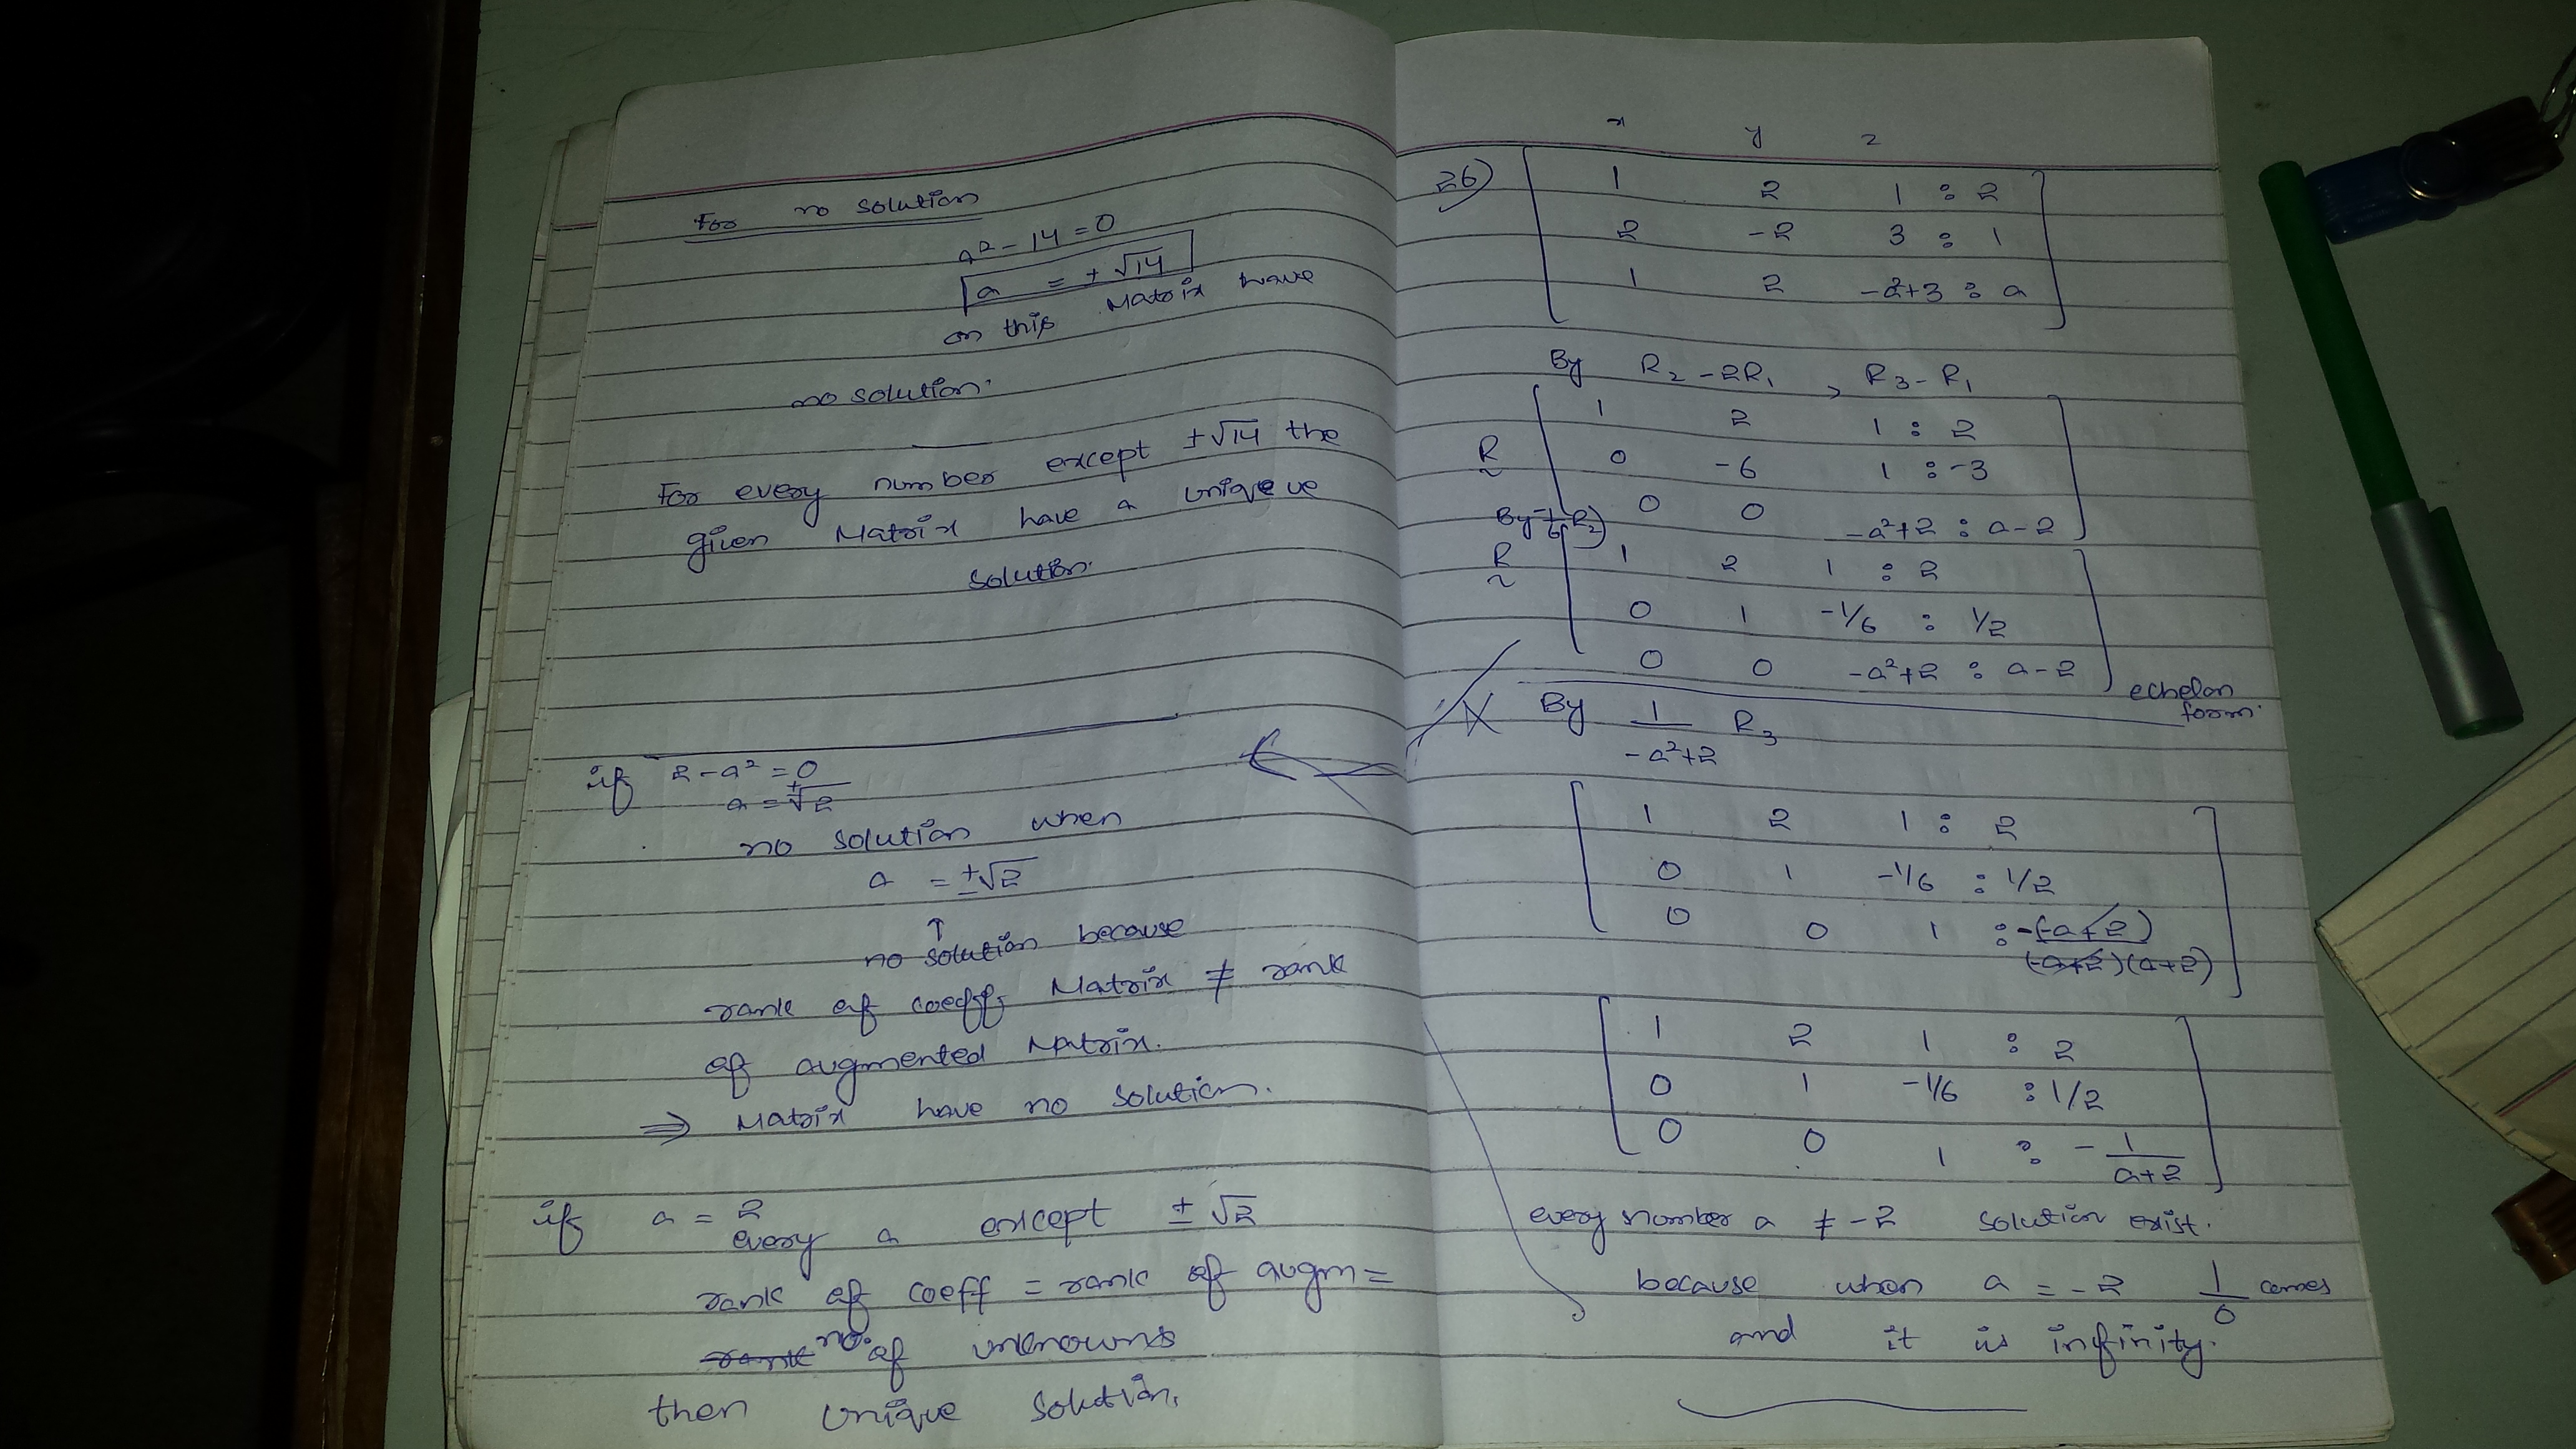 For no solution
a² - 14 = 0
a = ± √14
on this Matrix have
no solution.
For every number except ±√14 the
given Matrix have a unique ve
solution.
if 2 - a² = 0
a = ±√2
no solution when
a = ±√2
↑
no solution because
rank of coeff. Matrix ≠ rank
of augmented Matrix.
⇒ Matrix have no solution.
if a = 2
every a except ± √2
rank of coeff = rank of augm =
no. of unknowns
then unique solution.
x y z
26) 1 2 1 : 2
2 -2 3 : 1
1 2 -a²+3 : a
By R₂ - 2R₁ , R₃ - R₁
1 2 1 : 2
R ~ 0 -6 1 : -3
0 0 -a²+2 : a-2
By -1/6 R₂)
R ~ 1 2 1 : 2
0 1 -1/6 : 1/2
0 0 -a²+2 : a-2
echelon
form.
X By 1/(-a²+2) R₃
1 2 1 : 2
0 1 -1/6 : 1/2
0 0 1 : -(-a+2)/(-a+2)(a+2)
1 2 1 : 2
0 1 -1/6 : 1/2
0 0 1 : - 1/(a+2)
every number a ≠ -2 solution exist.
because when a = -2 1/0 comes
and it is infinity.